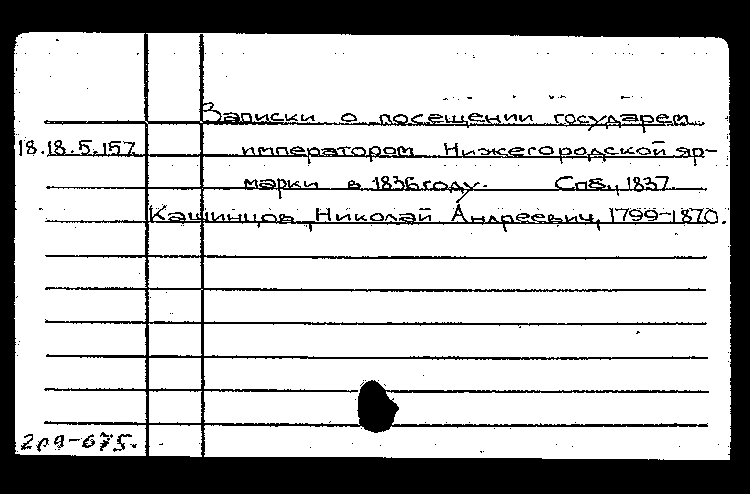 Записки о посещении государем
18.18.5.157 императором Нижегородской яр-
марки в 1836 году. Спб., 1837.
Кашинцов, Николай Андреевич, 1799-1870.
209-675.